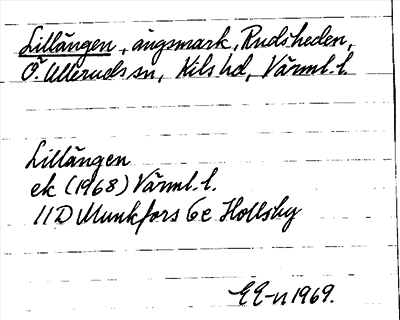 Lillängen, ängsmark, Rudsheden,
Ö. Ulleruds sn, Kils hd, Värml. l.
Lillängen
ek (1968) Värml. l.
11D Munkfors 6e Hollsby
EE-n 1969.